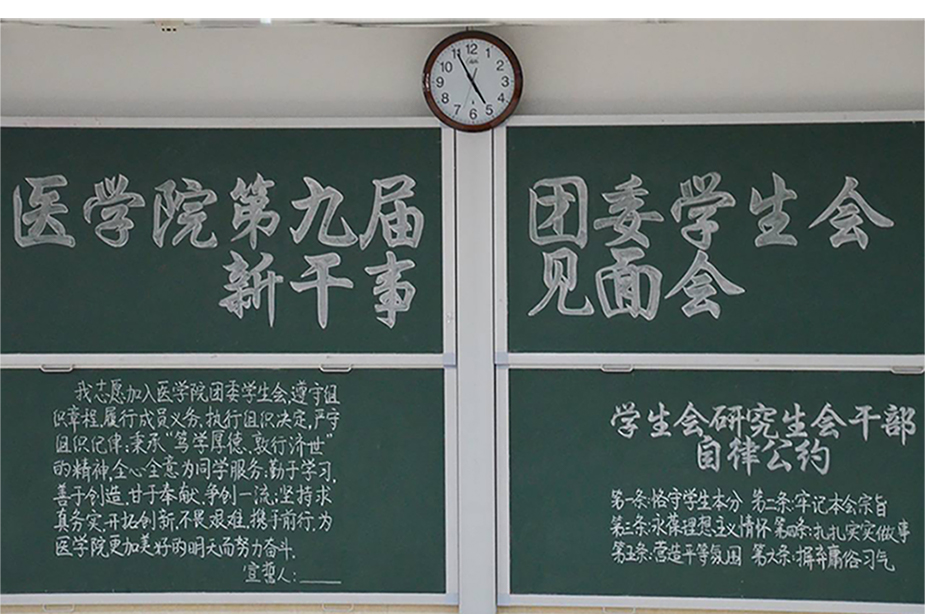 医学院第九届
新干事
团委学生会
见面会
12
1
2
3
4
5
6
7
8
9
10
11
我志愿加入医学院团委学生会,遵守组
织章程,履行成员义务,执行组织决定,严守
组织纪律;秉承“笃学厚德、敦行济世”
的精神,全心全意为同学服务;勤于学习,
善于创造,甘于奉献,争创一流;坚持求
真务实,开拓创新,不畏艰难,携手前行,为
医学院更加美好的明天而努力奋斗.
宣誓人:
学生会研究生会干部
自律公约
第一条:恪守学生本分 第二条:牢记本会宗旨
第三条:永葆理想主义情怀 第四条:扎扎实实做事
第五条:营造平等氛围 第六条:摒弃庸俗习气